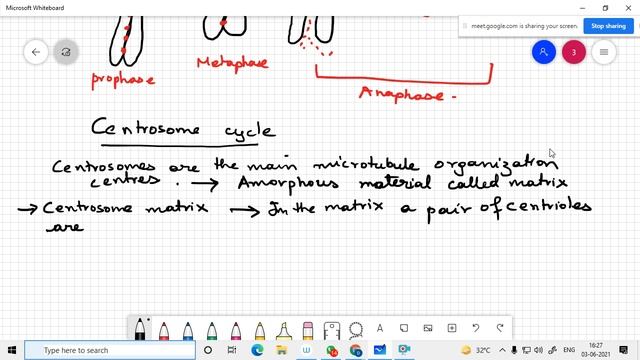 Microsoft Whiteboard
meet.google.com is sharing your screen.
Stop sharing
3
prophase
Metaphase
Anaphase.
Centrosome cycle
Centrosomes are the main microtubule organization
centres. → Amorphous material called matrix
→ Centrosome matrix → In the matrix a pair of centrioles
are
A
Type here to search
W
32°C
ENG
16:27
03-06-2021